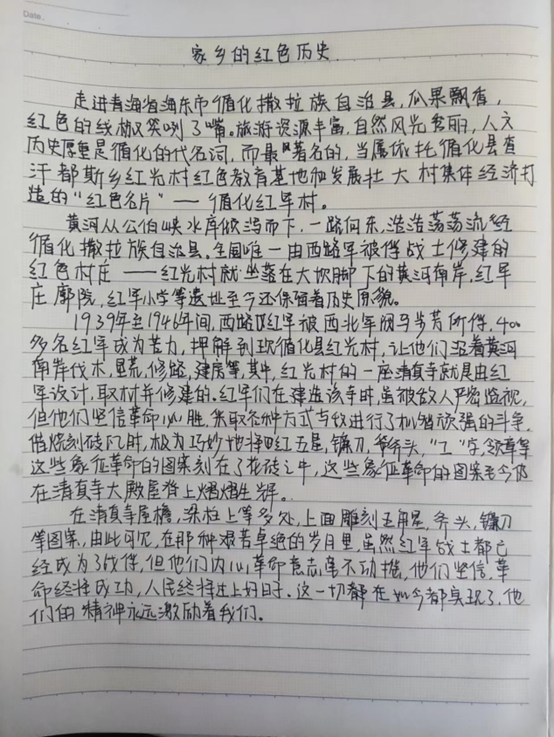 Date.
家乡的红色历史
走进青海省海东市循化撒拉族自治县,瓜果飘香,
红色的线椒笑咧了嘴。旅游资源丰富,自然风光秀丽,人文
历史厚重是循化的代名词,而最著名的,当属依托循化县查
汗都斯乡红光村红色教育基地和发展壮大村集体经济打
造的“红色名片”——循化红军村。
黄河从公伯峡水库倾泻而下,一路向东,浩浩荡荡流经
循化撒拉族自治县。全国唯一由西路军被俘战士修建的
红色村庄——红光村就坐落在大坝脚下的黄河南岸,红军
庄廓院,红军小学等遗址至今还保留着历史原貌。
1939年至1946年间,西路红军被西北军阀马步芳所俘,400
多名红军成为苦力,押解到现循化县红光村,让他们沿着黄河
南岸伐木,垦荒,修路,建房等,其中,红光村的一座清真寺就是由红
军设计,取材并修建的。红军们在建造该寺时,虽被敌人严密监视,
但他们坚信革命必胜,采取各种方式与敌进行了机智顽强的斗争,
借烧刻砖瓦时,极为巧妙地将红五星,镰刀,斧头,“工”字,领章等
这些象征革命的图案刻在了花砖之中,这些象征革命的图案至今仍
在清真寺大殿屋脊上熠熠生辉。
在清真寺屋檐,梁柱上等多处,上面雕刻五角星,斧头,镰刀
等图案,由此可见,在那种艰苦卓绝的岁月里,虽然红军战士都已
经成为了战俘,但他们内心革命意志毫不动摇,他们坚信,革
命终将成功,人民终将过上好日子。这一切都在如今都实现了,他
们的精神永远激励着我们。